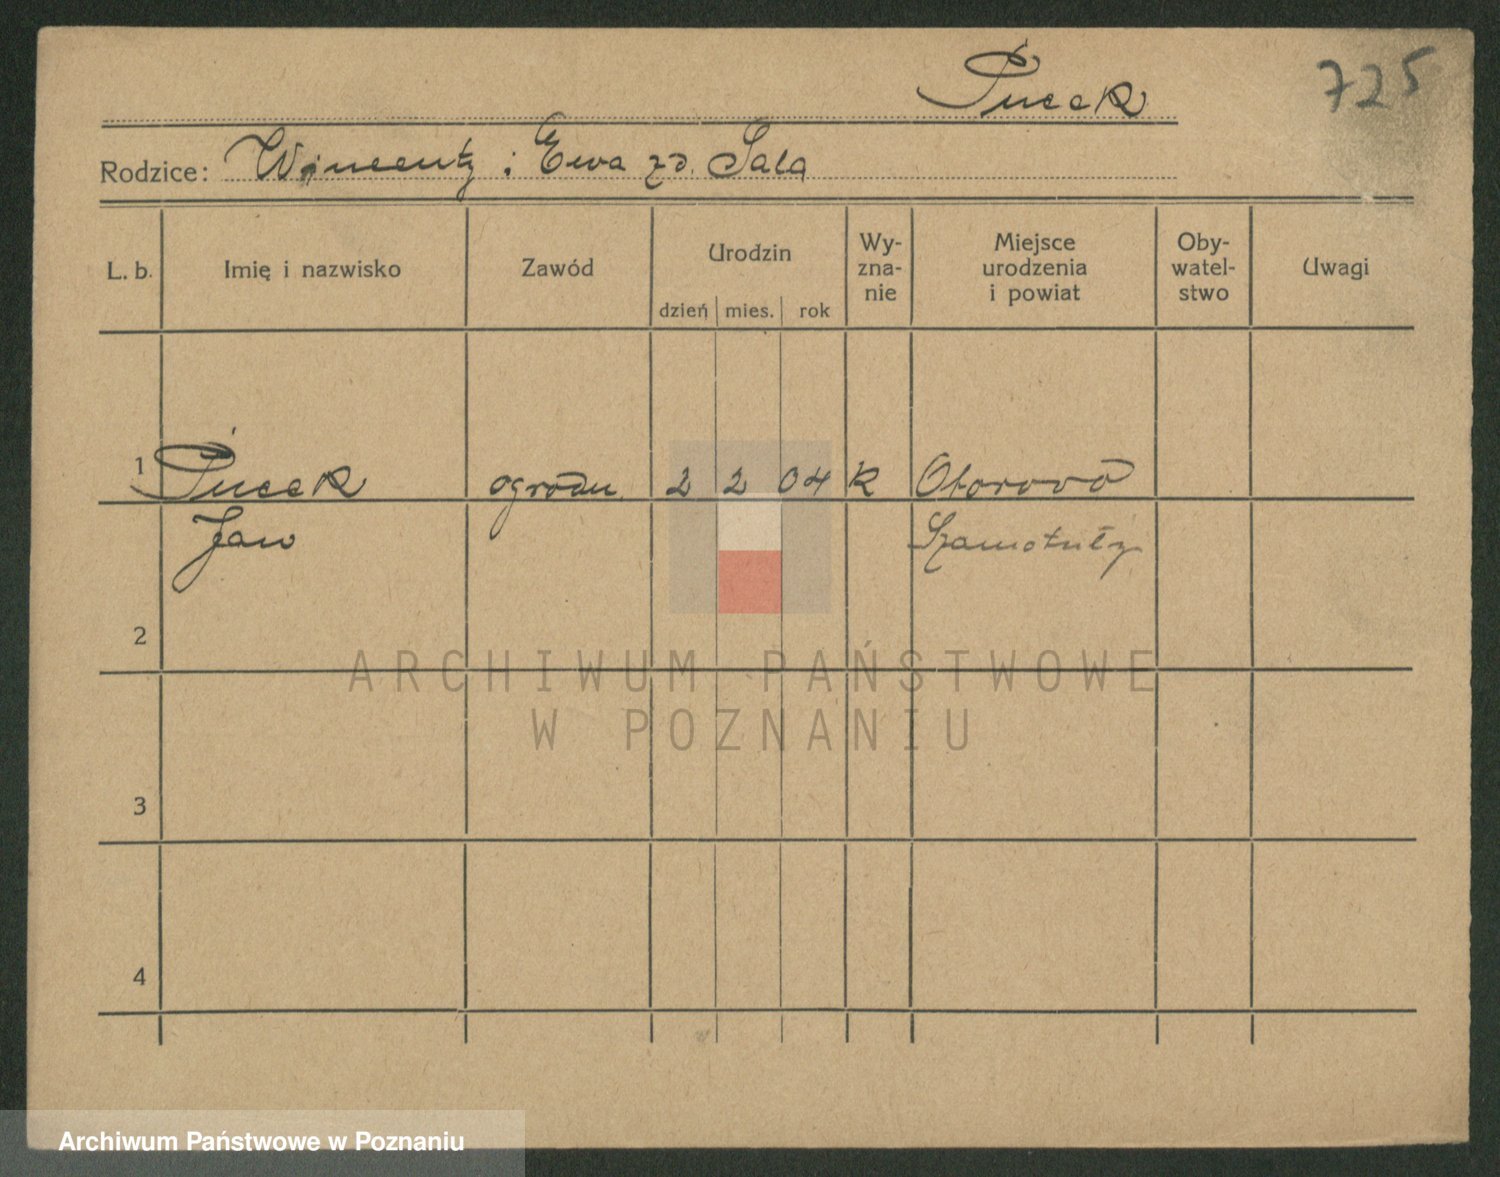 Pucek
725
Rodzice: Wincenty i Ewa zd. Sala
L. b. Imię i nazwisko Zawód Urodzin dzień mies. rok Wy-zna-nie Miejsce urodzenia i powiat Oby-watel-stwo Uwagi
1 Pucek ogrodn. 2 2 04 k Otorowo
Jan Szamotuły
2
3
4
ARCHIWUM PAŃSTWOWE
W POZNANIU
Archiwum Państwowe w Poznaniu